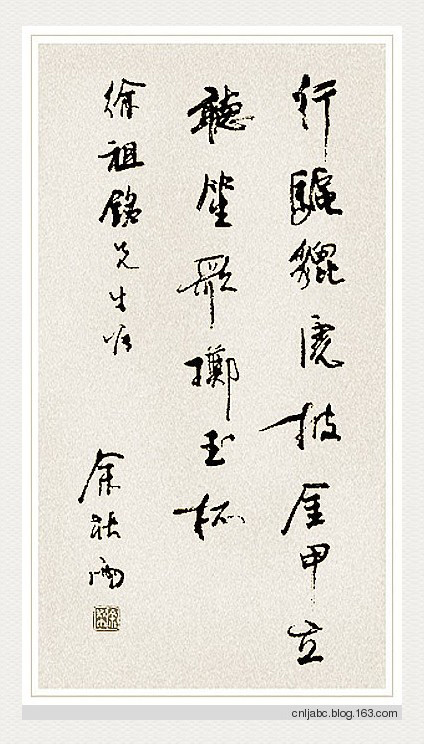 行驅貔虎披金甲立
聽笙歌擲玉杯
徐祖銘先生
余秋雨
cnljabc.blog.163.com